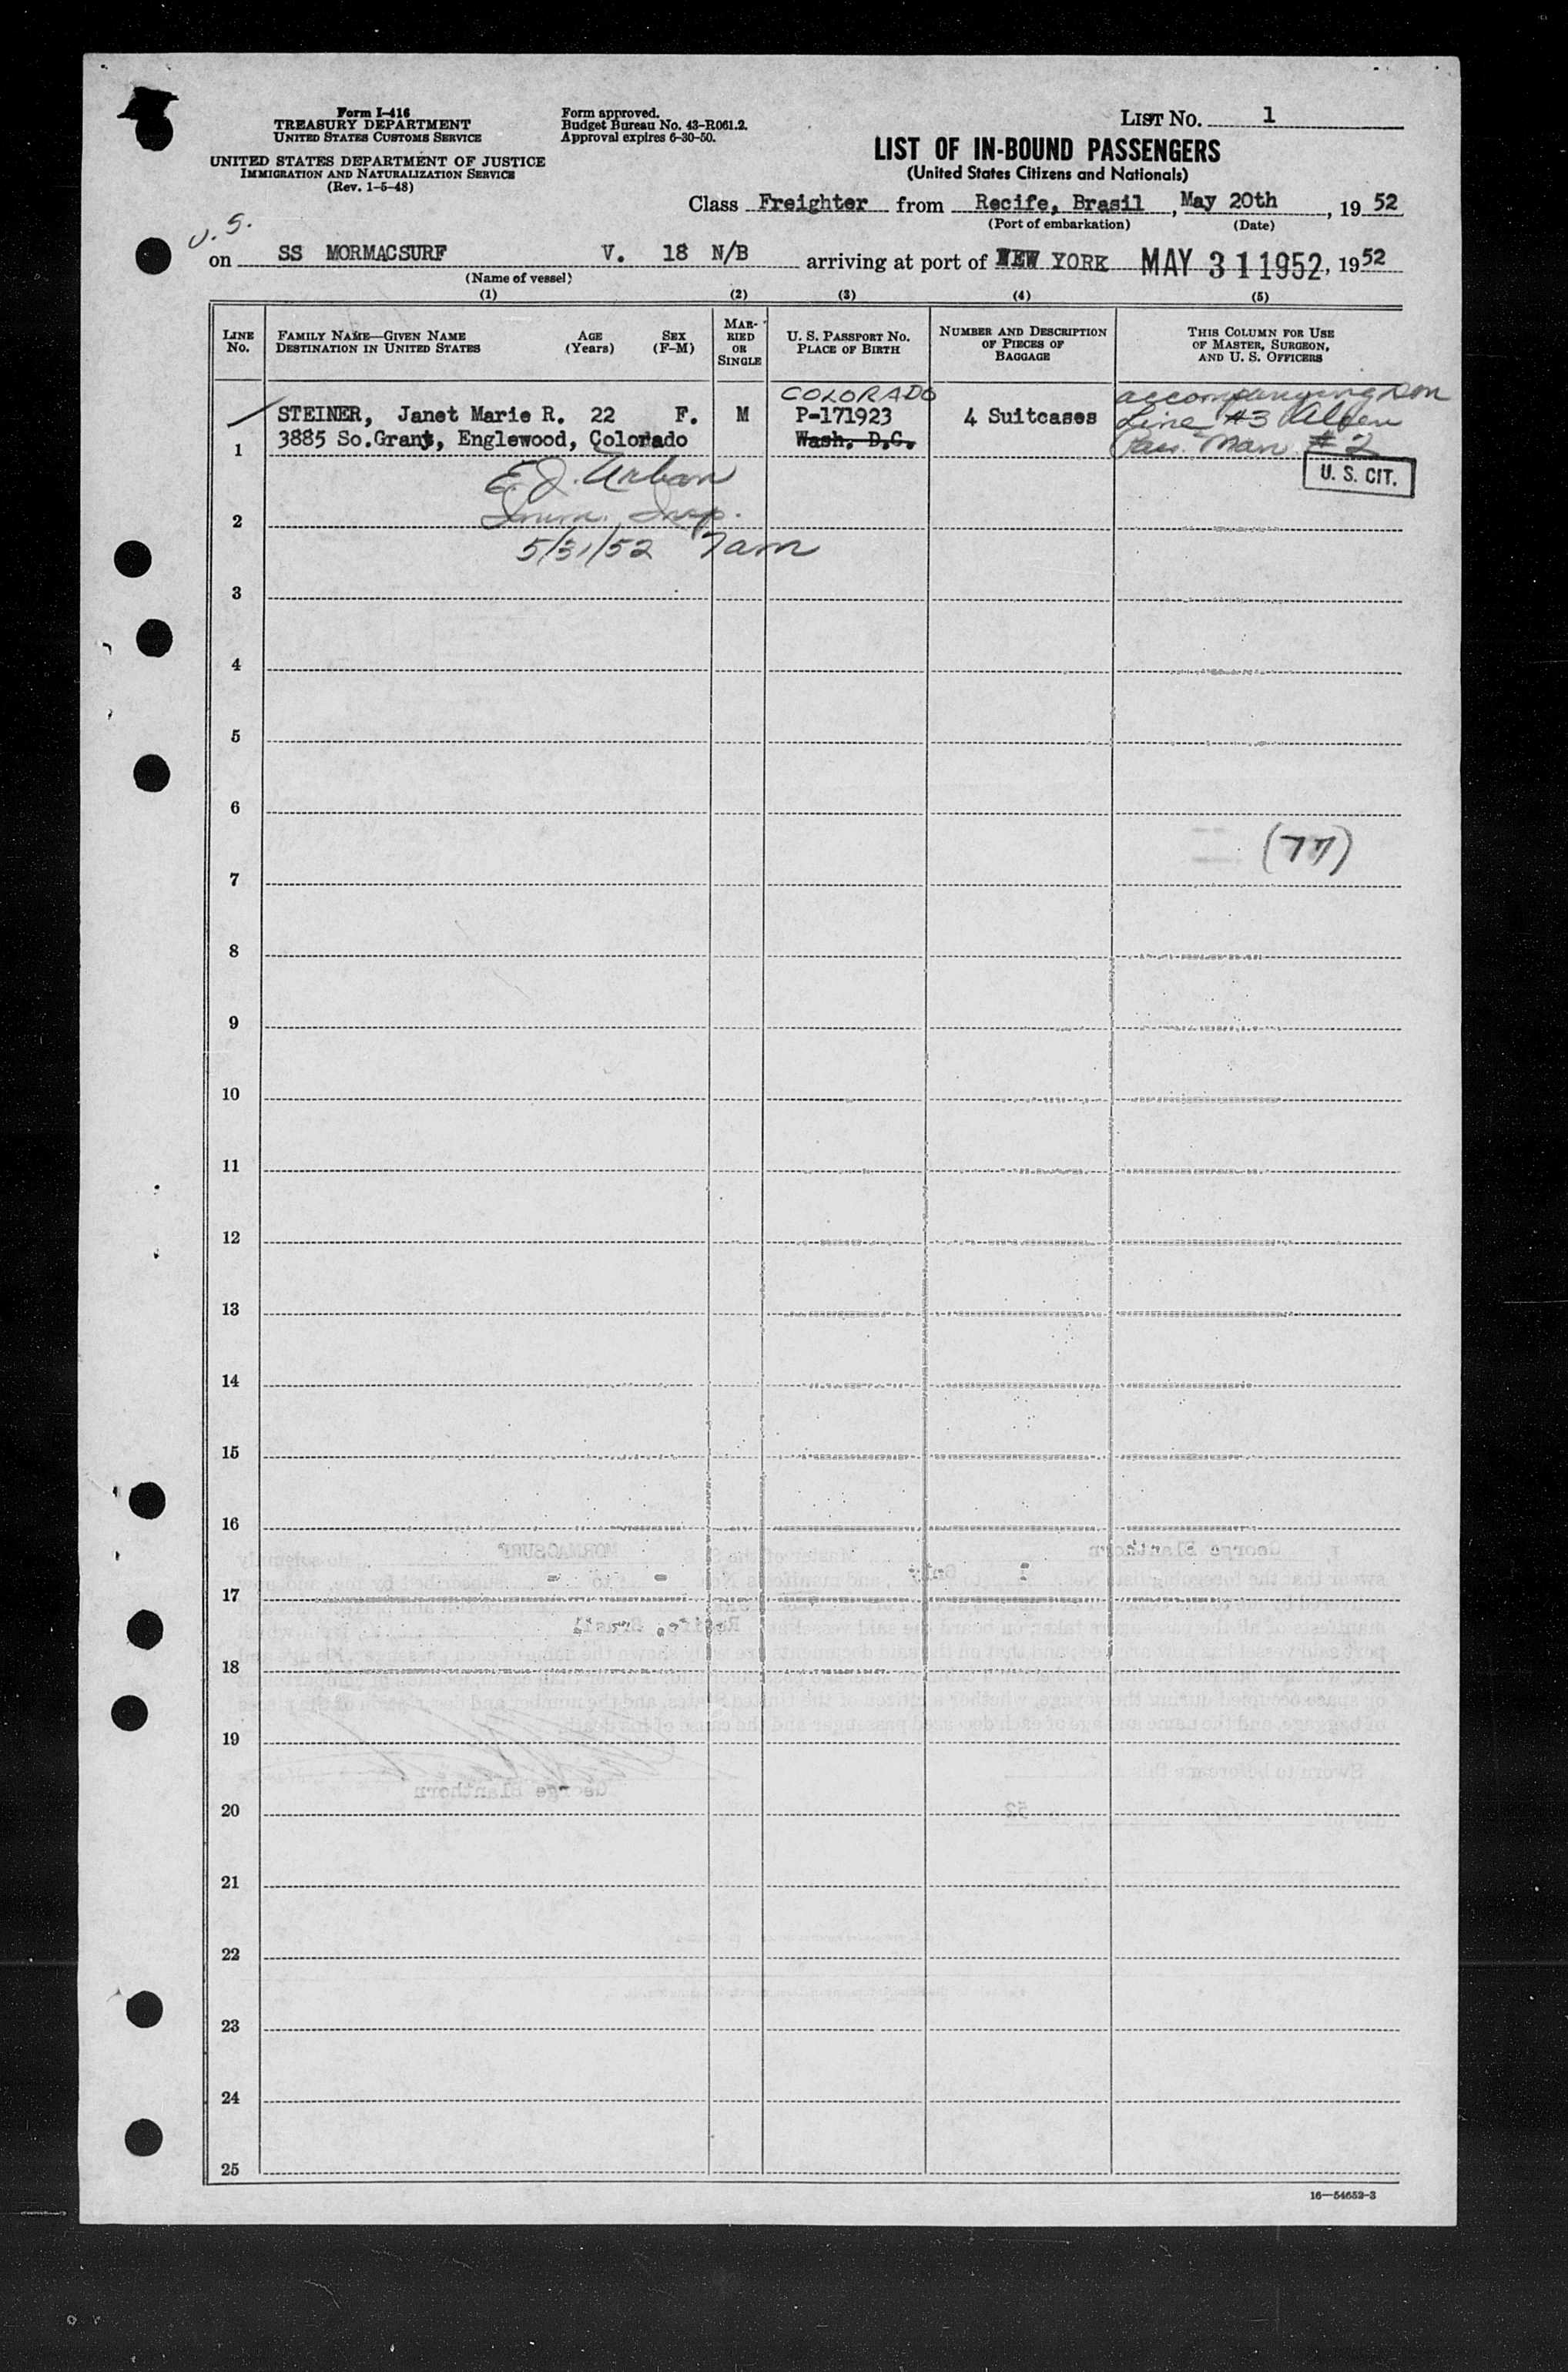 Form I-416
TREASURY DEPARTMENT
UNITED STATES CUSTOMS SERVICE
UNITED STATES DEPARTMENT OF JUSTICE
IMMIGRATION AND NATURALIZATION SERVICE
(Rev. 1-5-48)
Form approved.
Budget Bureau No. 43-R061.2.
Approval expires 6-30-50.
LIST No. 1
LIST OF IN-BOUND PASSENGERS
(United States Citizens and Nationals)
Class Freighter from Recife, Brasil, May 20th, 19 52
(Port of embarkation) (Date)
U.S.
on SS MORMACSURF V. 18 N/B arriving at port of NEW YORK MAY 31 1952, 19 52
(Name of vessel)
(1) (2) (3) (4) (5)
LINE No.
FAMILY NAME—GIVEN NAME AGE SEX
DESTINATION IN UNITED STATES (Years) (F-M)
MARRIED OR SINGLE
U. S. PASSPORT No.
PLACE OF BIRTH
NUMBER AND DESCRIPTION
OF PIECES OF
BAGGAGE
THIS COLUMN FOR USE
OF MASTER, SURGEON,
AND U. S. OFFICERS
COLORADO accompanying son
STEINER, Janet Marie R. 22 F. M P-171923 4 Suitcases Line #3 Alien
1 3885 So.Grant, Englewood, Colorado Wash. D.C. Man. #2
U. S. CIT.
E.J. Urban
2 Imm. Insp.
5/31/52 7am
3
4
5
6
(77)
7
8
9
10
11
12
13
14
15
16
17
18
19
20
21
22
23
24
25
16—54652-3